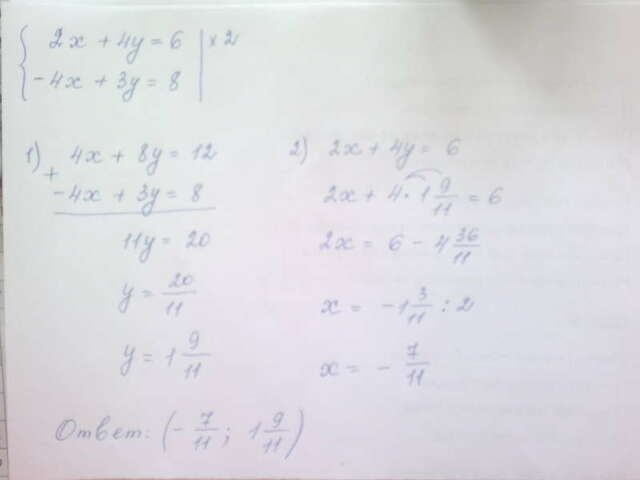 { 2x + 4y = 6 | × 2
-4x + 3y = 8
1) 4x + 8y = 12
+
-4x + 3y = 8
11y = 20
y = 20/11
y = 1 9/11
2) 2x + 4y = 6
2x + 4 · 1 9/11 = 6
2x = 6 - 4 36/11
x = -1 3/11 : 2
x = - 7/11
Ответ: (- 7/11 ; 1 9/11)